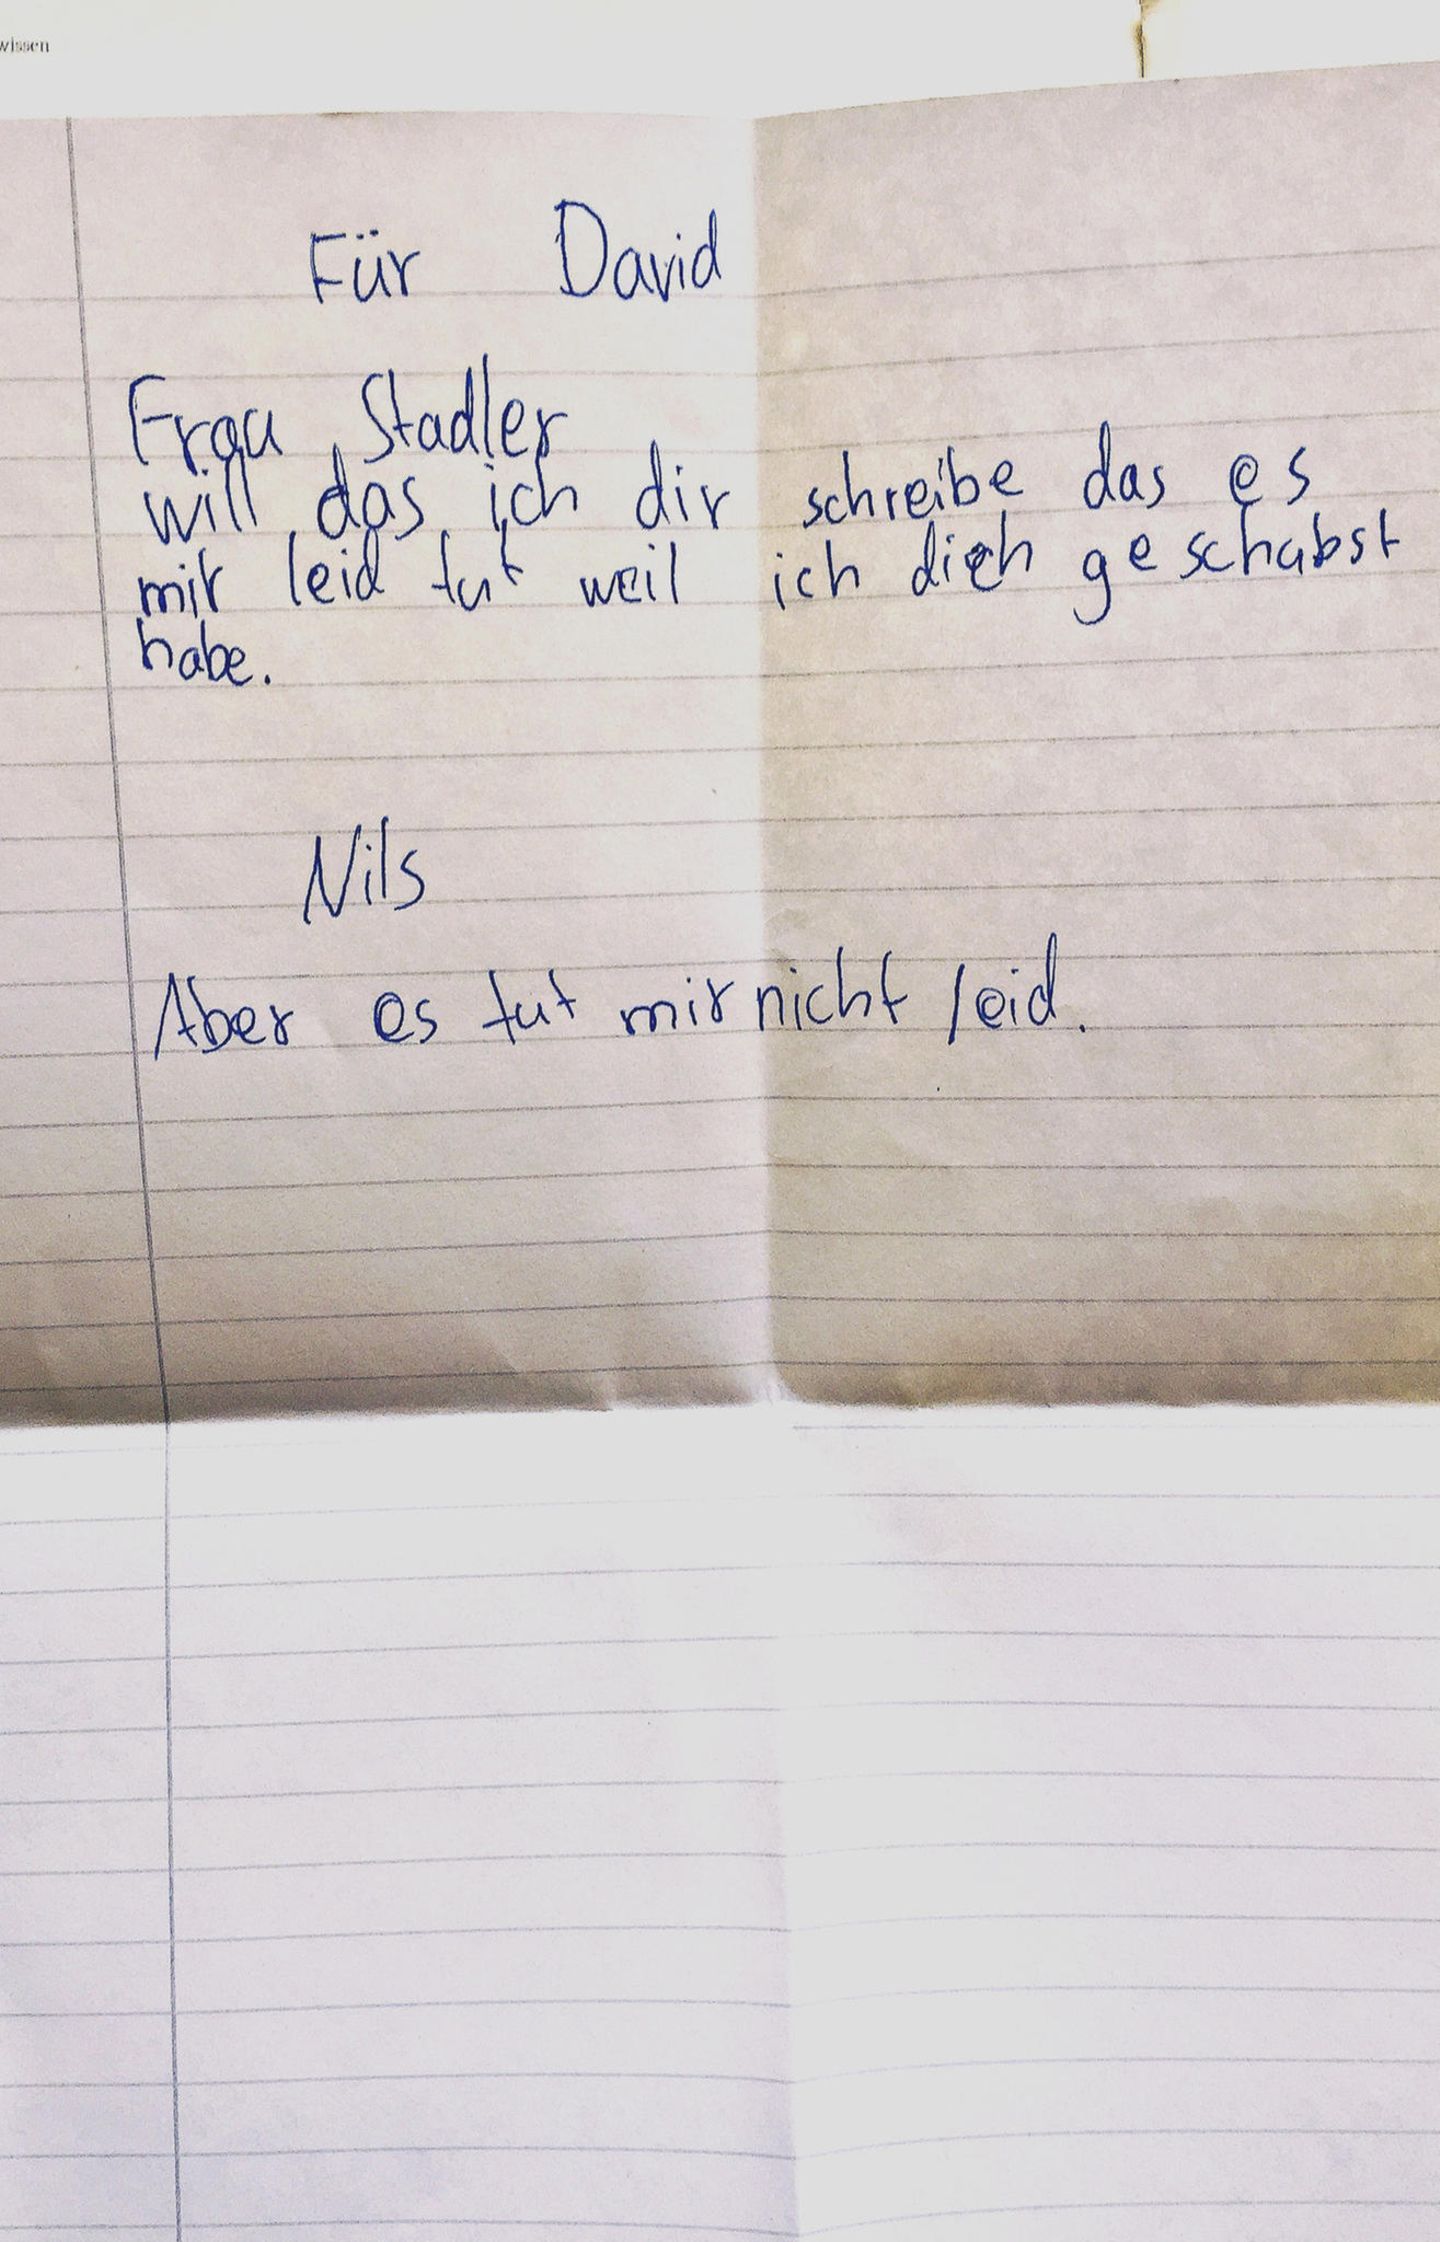 wissen
Für David
Frau Stadler
will das ich dir schreibe das es
mir leid tut weil ich dich geschubst
habe.
Nils
Aber es tut mir nicht leid.